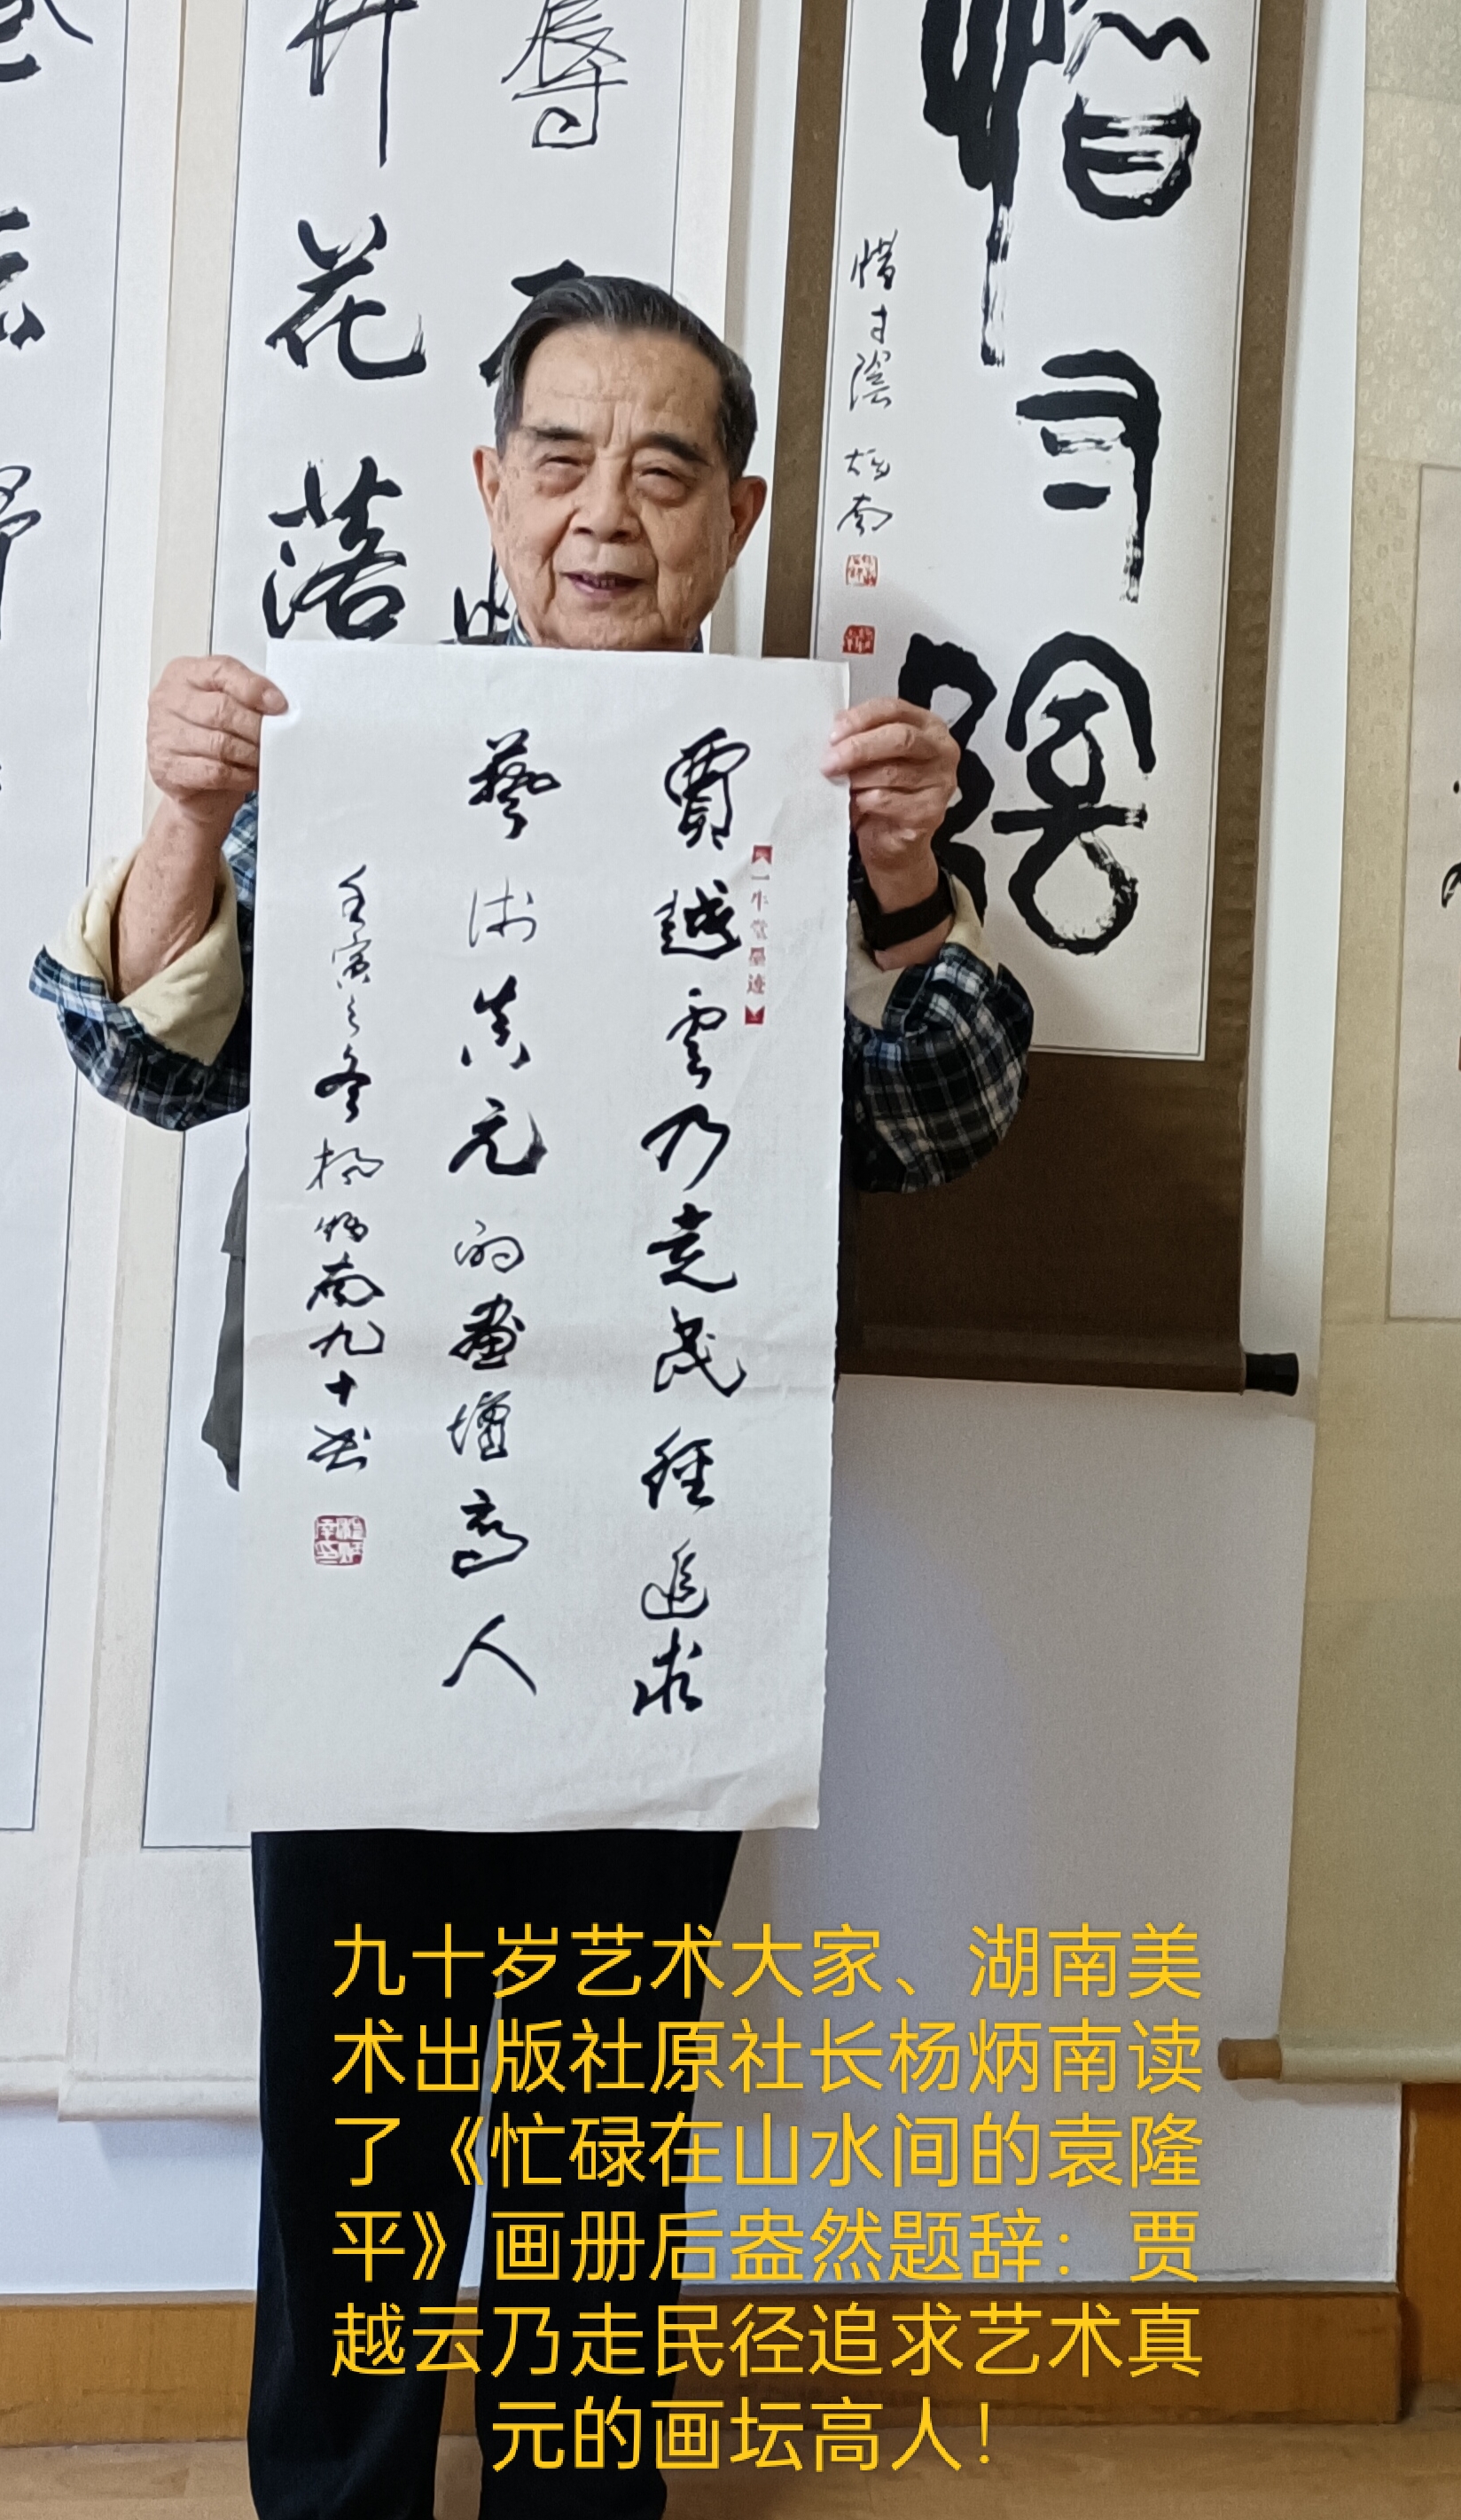 花
落
辱
惜寸陰
炳南
惜寸陰
一牛堂墨迹
賈越雲乃走民徑追求
藝术真元的畫壇高人
壬寅之冬楊炳南九十书
九十岁艺术大家、湖南美
术出版社原社长杨炳南读
了《忙碌在山水间的袁隆
平》画册后盎然题辞：贾
越云乃走民径追求艺术真
元的画坛高人！